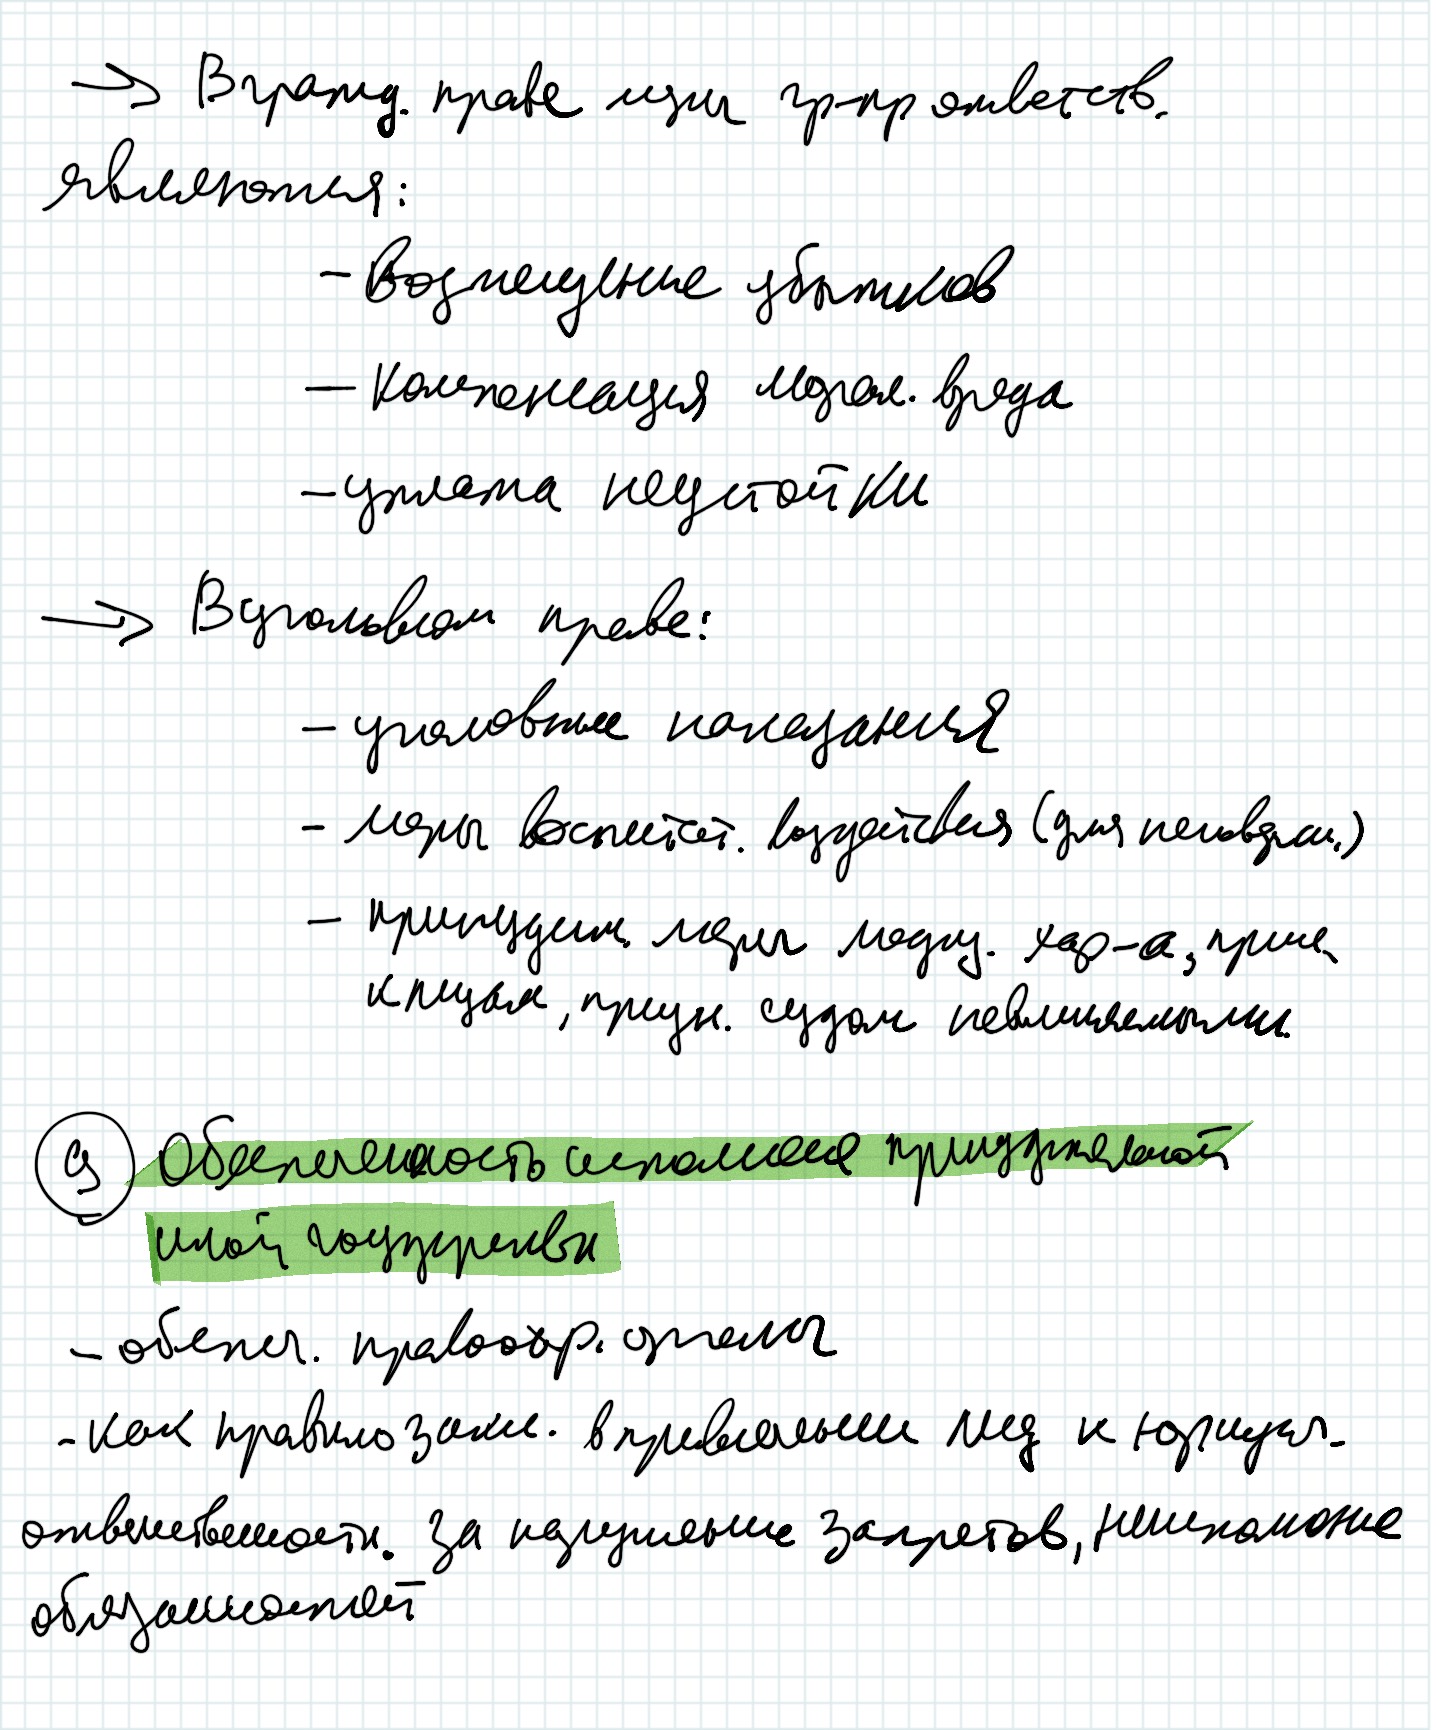 → В гражд. праве меры гр-пр ответств.
являются:
- Возмещение убытков
- Компенсация морал. вреда
- уплата неустойки
→ В уголовном праве:
- уголовные наказания
- меры воспитат. воздействия (для несоверш.)
- принудит. меры медиц. хар-а, прим.
к лицам, призн. судом невменяемыми.
Обеспеченность исполнения принудительной
силой государства
- обеспеч. правоохр. органы
- как правило закл. в привлечении лиц к юридич.
ответственности. За нарушение запретов, неисполнение
обязанностей